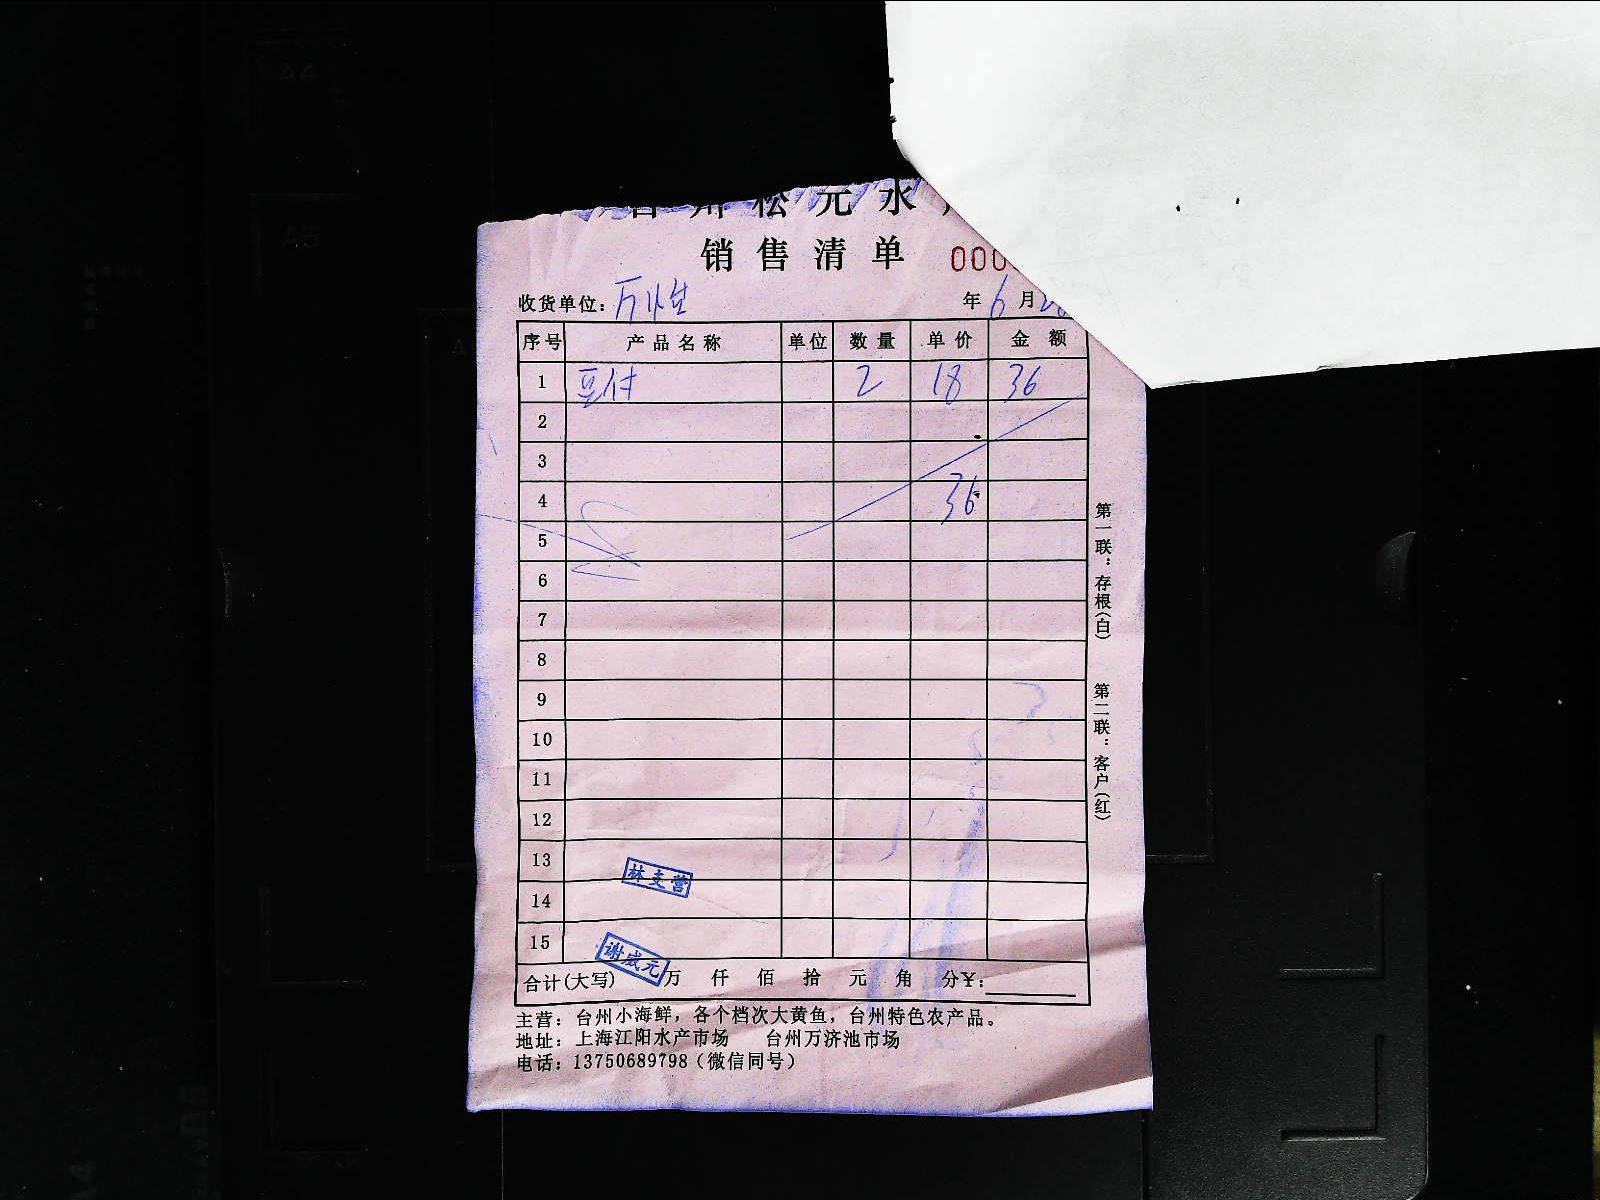 台州松元水
销售清单 000
收货单位: 年6月2
序号 产品名称 单位 数量 单价 金额
1 豆付 2 18 36
2
3
4 36
5
6
7
8
9
10
11
12
13
林支营
14
15
谢成元
合计(大写) 万 仟 佰 拾 元 角 分¥:
主营: 台州小海鲜, 各个档次大黄鱼, 台州特色农产品。
地址: 上海江阳水产市场 台州万济池市场
电话: 13750689798 (微信同号)
第一联: 存根(白) 第二联: 客户(红)
A4
A5
B5
A4